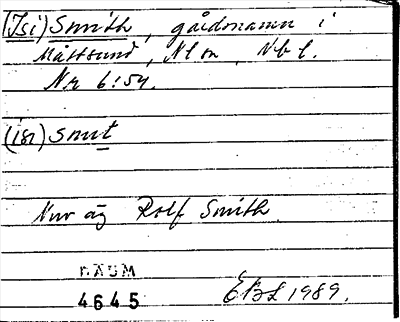 (Isi) Smith, gårdsnamn i
Måttsund, Nl sn, Vb l.
Nr 6:54.
(isi) smit
Nuv äg Rolf Smith.
DAUM
4645
EBL 1989.